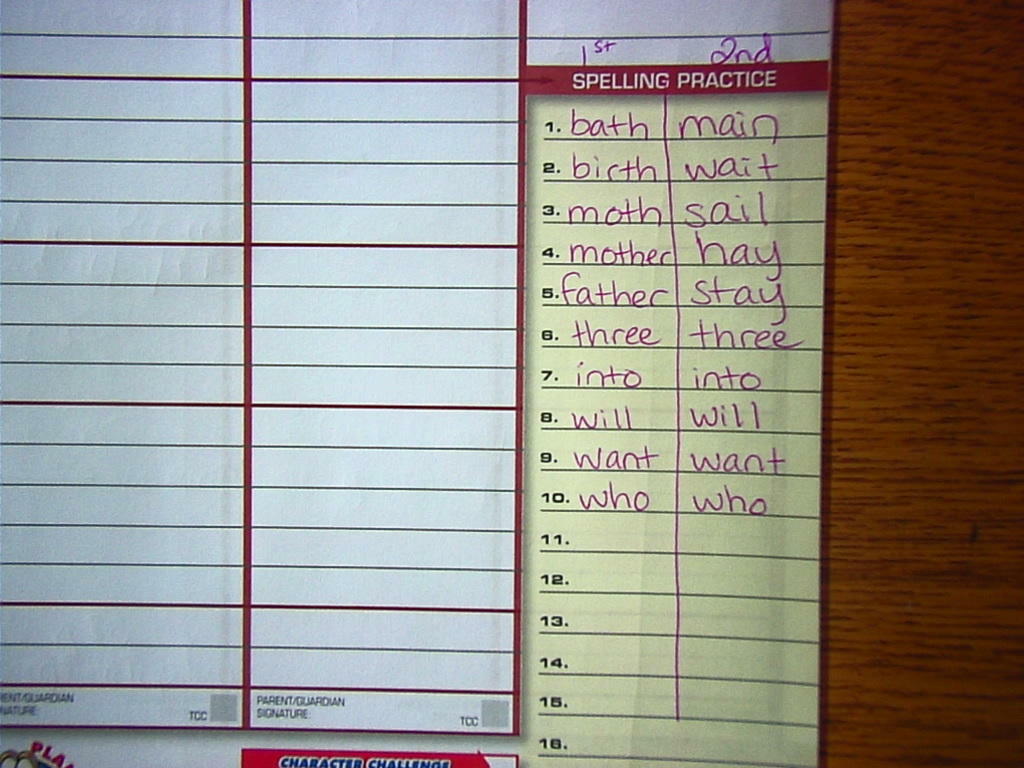 1st 2nd
SPELLING PRACTICE
1. bath main
2. birth wait
3. moth sail
4. mother hay
5. father stay
6. three three
7. into into
8. will will
9. want want
10. who who
11.
12.
13.
14.
15.
16.
PARENT/GUARDIAN
SIGNATURE: TCC
PARENT/GUARDIAN
SIGNATURE: TCC
CHARACTER CHALLENGE